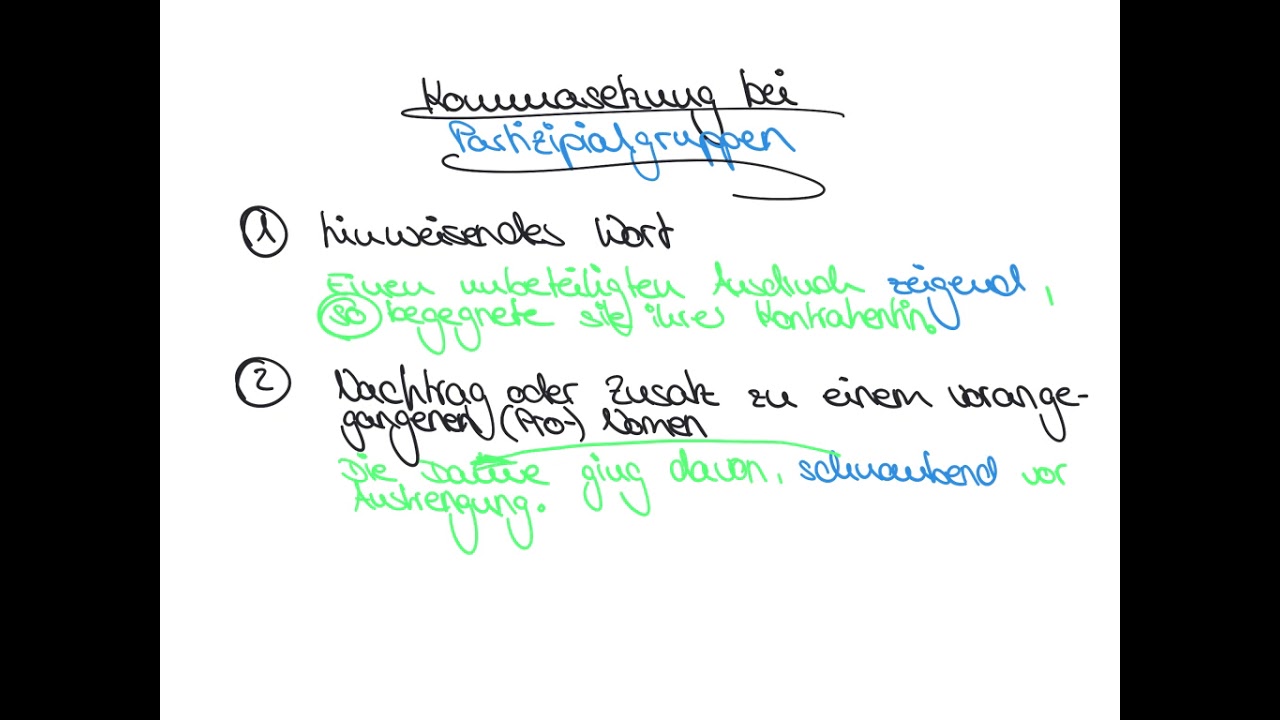 Kommasetzung bei
Partizipialgruppen
1 hinweisendes Wort
Einen unbeteiligten Ausdruck zeigend,
so begegnete sie ihrer Kontrahentin.
2 Nachtrag oder Zusatz zu einem vorange-
gangenen (Pro-) Nomen
Die Dame ging davon, schnaubend vor
Anstrengung.